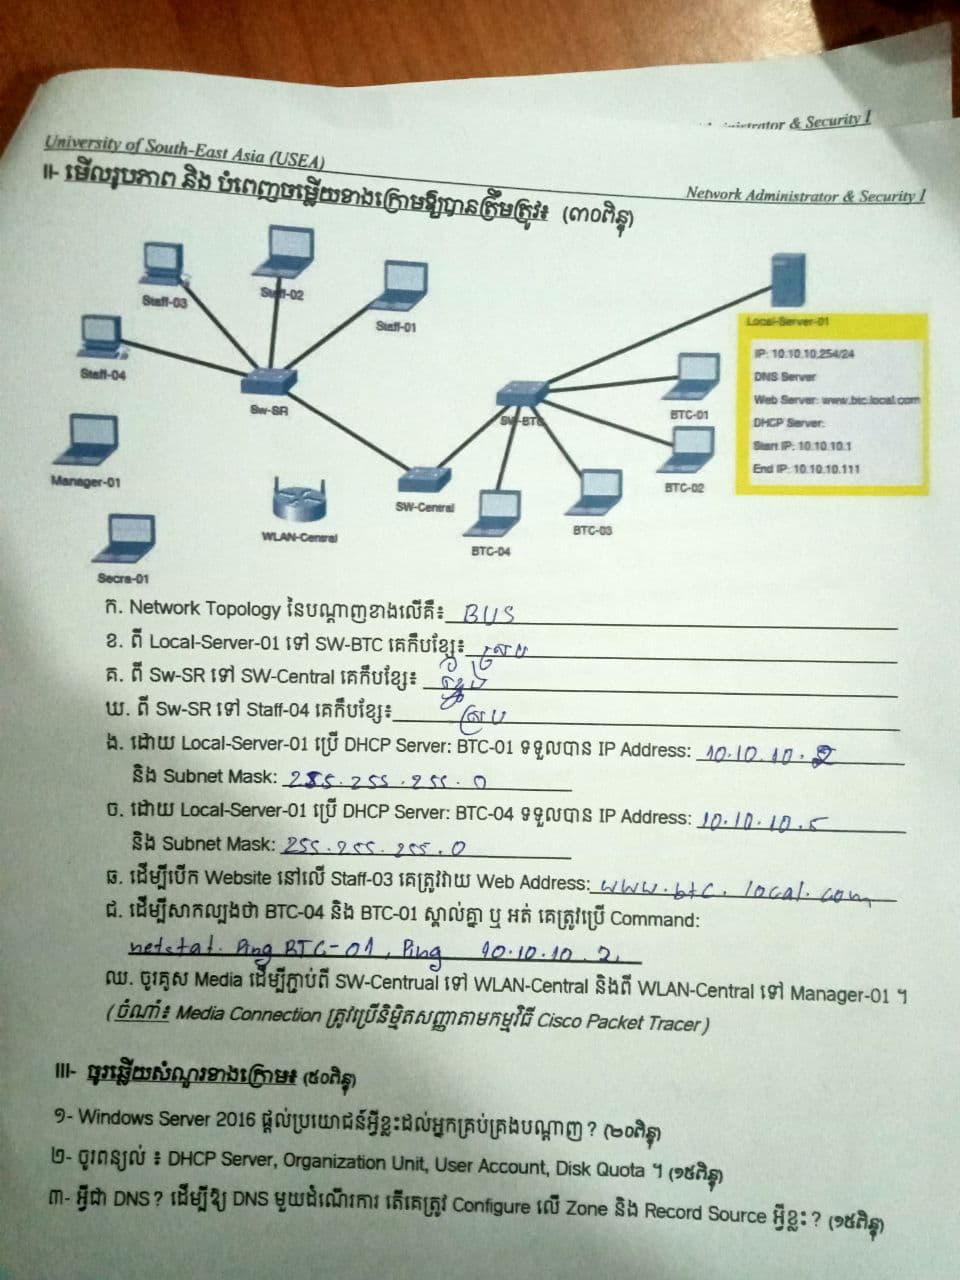 University of South-East Asia (USEA)
& Security 1
Network Administrator & Security 1
II- មើលរូបភាព និង បំពេញចម្លើយខាងក្រោមឱ្យបានត្រឹមត្រូវ៖ (៣០ពិន្ទុ)
Staff-03
Staff-02
Staff-01
Staff-04
Sw-SR
Manager-01
WLAN-Central
Secra-01
SW-Central
SW-BTC
BTC-01
BTC-02
BTC-03
BTC-04
Local-Server-01
IP: 10.10.10.254/24
DNS Server
Web Server: www.btc.local.com
DHCP Server:
Start IP: 10.10.10.1
End IP: 10.10.10.111
ក. Network Topology នៃបណ្តាញខាងលើគឺ៖ BUS
ខ. ពី Local-Server-01 ទៅ SW-BTC គេកឹបខ្សែ៖ ស្រប
គ. ពី Sw-SR ទៅ SW-Central គេកឹបខ្សែ៖
ឃ. ពី Sw-SR ទៅ Staff-04 គេកឹបខ្សែ៖ ស្រប
ង. ដោយ Local-Server-01 ប្រើ DHCP Server: BTC-01 ទទួលបាន IP Address: 10.10.10.2
និង Subnet Mask: 255.255.255.0
ច. ដោយ Local-Server-01 ប្រើ DHCP Server: BTC-04 ទទួលបាន IP Address: 10.10.10.5
និង Subnet Mask: 255.255.255.0
ឆ. ដើម្បីបើក Website នៅលើ Staff-03 គេត្រូវវាយ Web Address: www.btc.local.com
ជ. ដើម្បីសាកល្បងថា BTC-04 និង BTC-01 ស្គាល់គ្នា ឬ អត់ គេត្រូវប្រើ Command:
netstat. Ping BTC-01, Ping 10.10.10.2.
ឈ. ចូរគូស Media ដើម្បីភ្ជាប់ពី SW-Centrual ទៅ WLAN-Central និងពី WLAN-Central ទៅ Manager-01 ។
(ចំណាំ៖ Media Connection ត្រូវប្រើនិមិត្តសញ្ញាតាមកម្មវិធី Cisco Packet Tracer)
III- ចូរឆ្លើយសំណួរខាងក្រោម៖ (៥០ពិន្ទុ)
១- Windows Server 2016 ផ្តល់ប្រយោជន៍អ្វីខ្លះដល់អ្នកគ្រប់គ្រងបណ្តាញ? (២០ពិន្ទុ)
២- ចូរពន្យល់ ៖ DHCP Server, Organization Unit, User Account, Disk Quota ។ (១៥ពិន្ទុ)
៣- អ្វីជា DNS? ដើម្បីឱ្យ DNS មួយដំណើរការ តើគេត្រូវ Configure លើ Zone និង Record Source អ្វីខ្លះ? (១៥ពិន្ទុ)